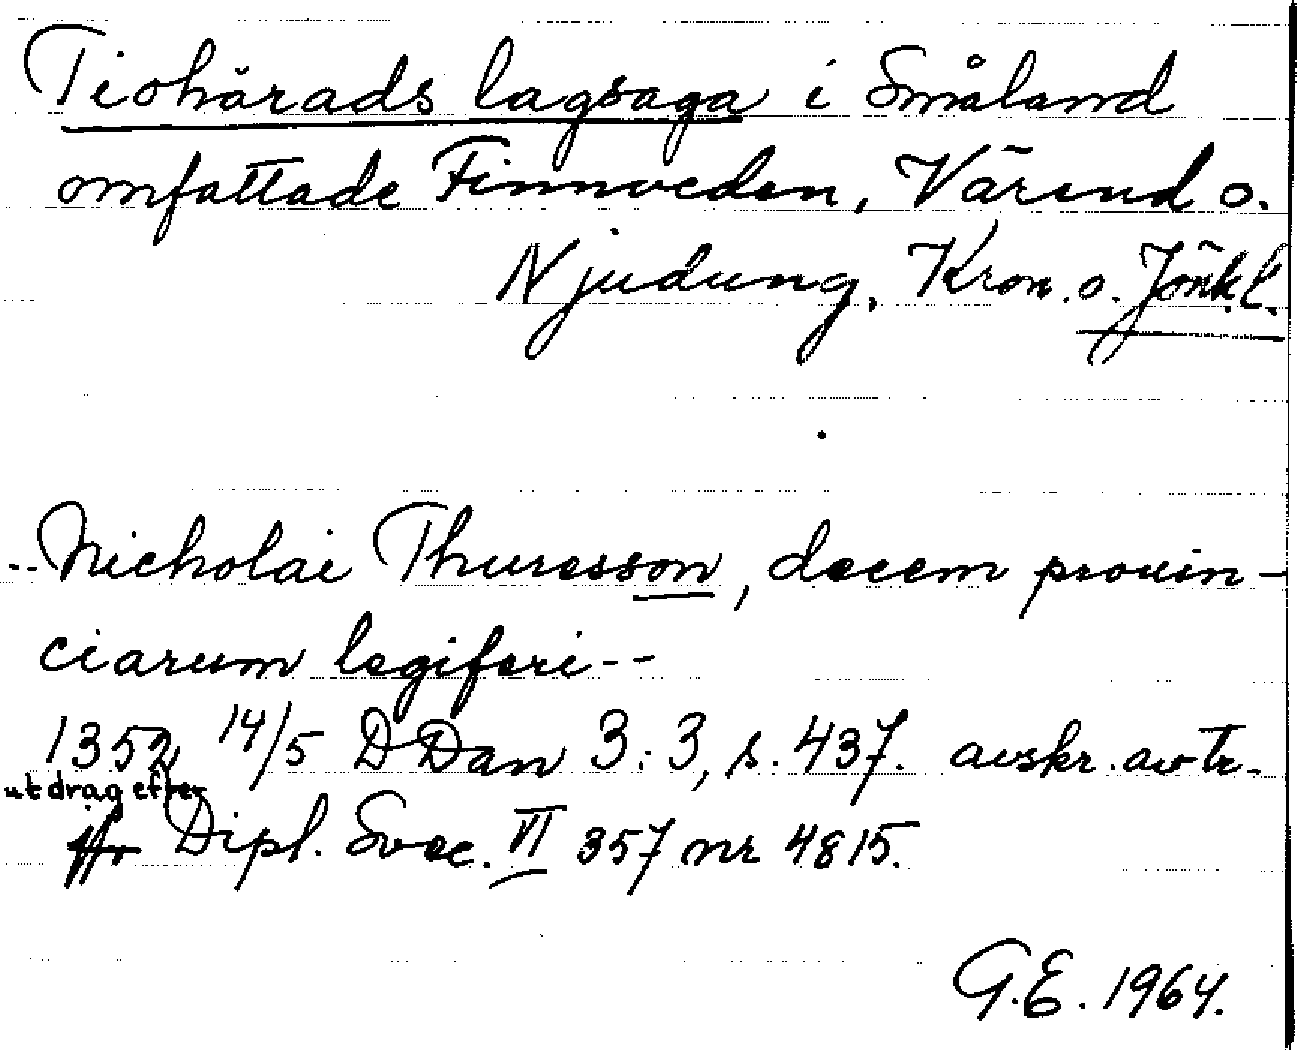 Tiohärads lagsaga i Småland
omfattade Finnveden, Värend o.
Njudung, Kron. o. Jönk.l.
--Nicholai Thuresson, decem prouin-
ciarum legiferi--
1352 14/5 DDan 3:3, s. 437. avskr. av tr.
utdrag efter
jfr Dipl. Svec. VI 357 nr 4815.
G.E. 1964.